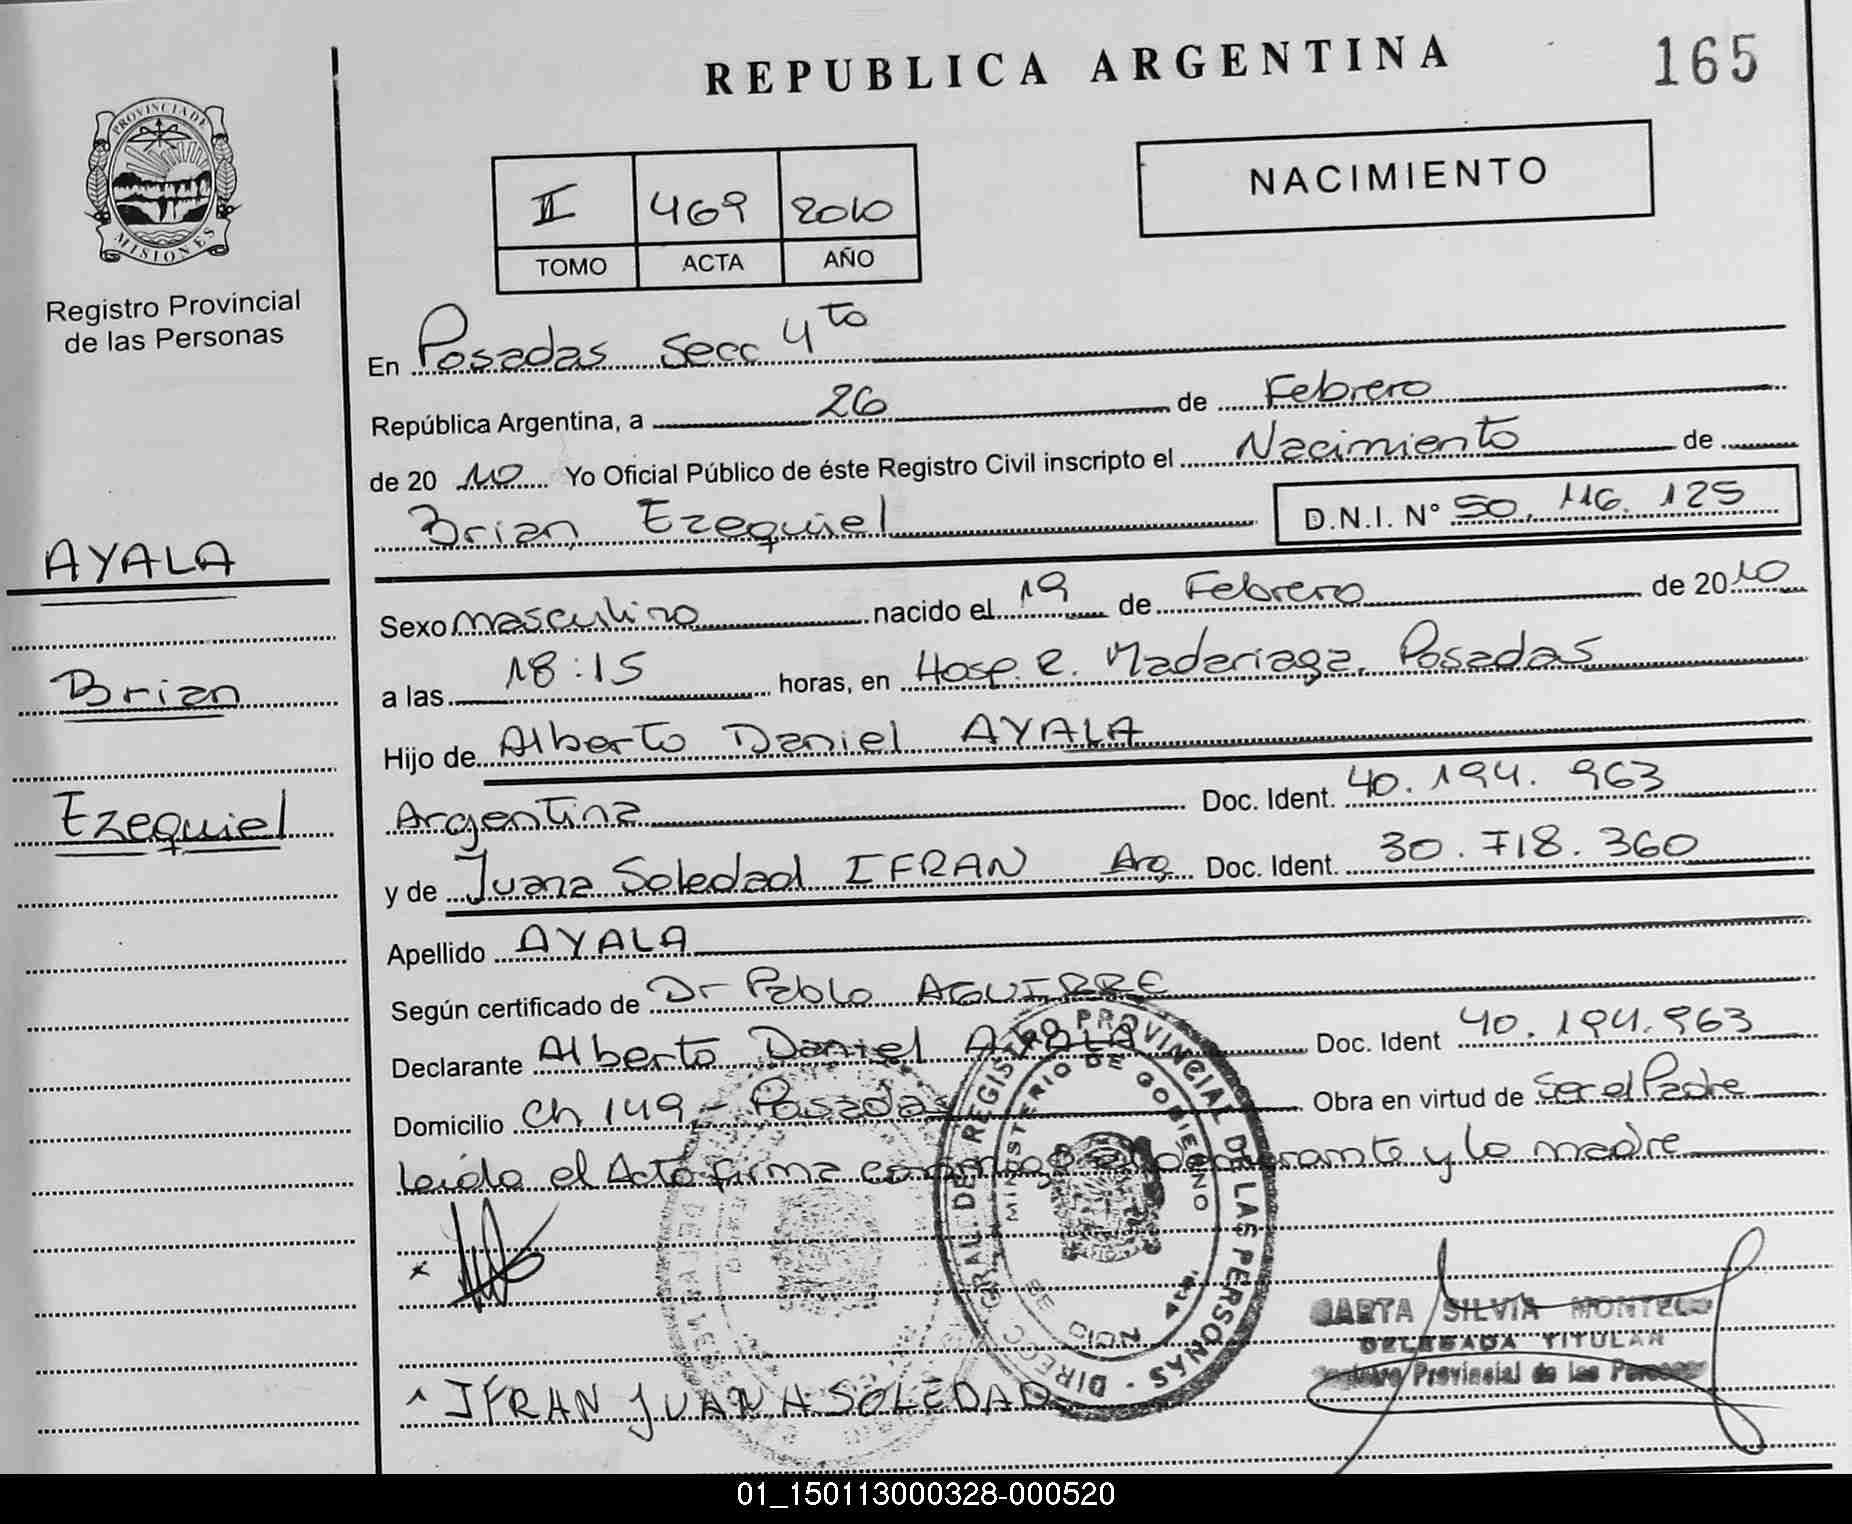 REPUBLICA ARGENTINA
165
PROVINCIA DE
MISIONES
Registro Provincial
de las Personas
NACIMIENTO
II 469 2010
TOMO ACTA AÑO
En Posadas Secc 4to
República Argentina, a 26 de Febrero
de 2010 Yo Oficial Público de éste Registro Civil inscripto el Nacimiento de
Brian Ezequiel D.N.I. N° 50.116.125
AYALA
Brian
Ezequiel
Sexo masculino nacido el 19 de Febrero de 2010
a las 18:15 horas, en Hosp. R. Madariaga. Posadas
Hijo de Alberto Daniel AYALA
Argentina Doc. Ident. 40.194.963
y de Juana Soledad IFRAN Arg Doc. Ident. 30.718.360
Apellido AYALA
Según certificado de Dr Pablo AGUIRRE
Declarante Alberto Daniel AYALA Doc. Ident 40.194.963
Domicilio Ch 149 - Posadas Obra en virtud de Ser el Padre
Leida el Acta firma conmigo y la madre
REGISTRO PROVINCIAL DE LAS PERSONAS
MINISTERIO DE GOBIERNO
x
MARTA SILVIA
DELEGADA TITULAR
Provincial de las Personas
IFRAN JUANA SOLEDAD
01_150113000328-000520